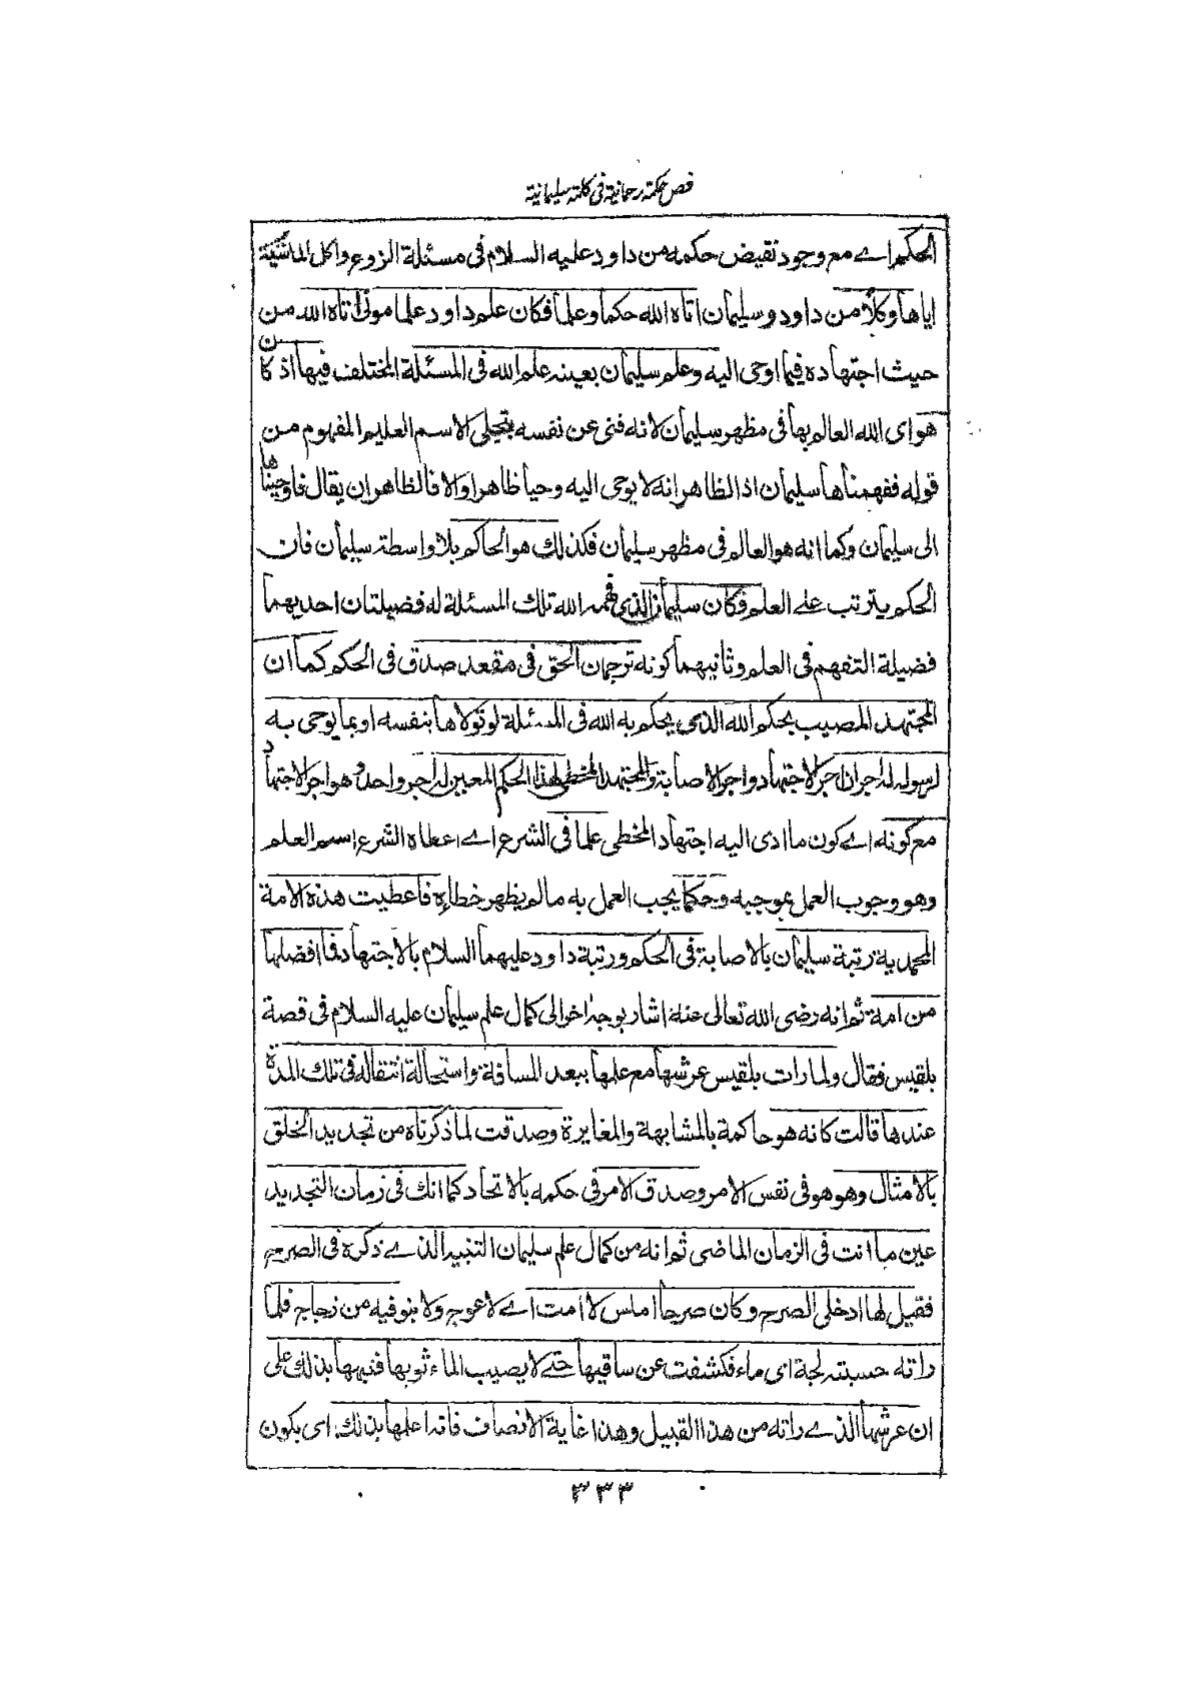 فص حكمة رحمانية فى كلمة سليمانية
الحكم اے مع وجود نقيض حكمه من داود عليه السلام فى مسئلة الزرع واكل الماشية
اياها وكلا من داود وسليمان اتاه الله حكما وعلما فكان علم داود علما موتى اتاه الله من
حيث اجتهاده فيما اوحى اليه وعلم سليمان بعينه علم الله فى المسئلة المختلف فيها اذ كان
هو اى الله العالم بها فى مظهر سليمان لانه فنى عن نفسه بتجلى الاسم العليم المفهوم من
قوله ففهمناها سليمان اذ الظاهر انه لا يوحى اليه وحيا ظاهرا والا فالظاهر ان يقال فاوحيناها
الى سليمان وكما انه هو العالم فى مظهر سليمان فكذلك هو الحاكم بلا واسطة سليمان فان
الحكم يترتب على العلم فكان سليمان الذى فهمه الله تلك المسئلة له فضيلتان احديهما
فضيلة التفهم فى العلم وثانيهما كونه ترجمان الحق فى مقعد صدق فى الحكم كما ان
المجتهد المصيب بحكم الله الذى يحكم به الله فى المسئلة لو تولاها بنفسه او بما يوحى به
لرسوله له اجران اجر الاجتهاد واجر الاصابة والمجتهد المخطى لهذا الحكم المعين له اجر واحد وهو اجر الاجتهاد
مع كونه اے كون ما ادى اليه اجتهاد المخطى علما فى الشرع اے اعطاه الشرع اسم العلم
وهو وجوب العمل بموجبه وحكما يجب العمل به مالم يظهر خطاءه فاعطيت هذه الامة
المحمدية رتبة سليمان بالاصابة فى الحكم ورتبة داود عليهما السلام بالاجتهاد فما افضلها
من امة ثم انه رضى الله تعالى عنه اشار بوجه اخر الى كمال علم سليمان عليه السلام فى قصة
بلقيس فقال ولما رات بلقيس عرشها مع علمها ببعد المسافة واستحالة انتقاله فى تلك المدة
عندها قالت كانه هو حاكمة بالمشابهة والمغايرة وصدقت لما ذكرناه من تجديد الخلق
بالامثال وهو هو فى نفس الامر وصدق الامر فى حكمه بالاتحاد كما انك فى زمان التجديد
عين ما انت فى الزمان الماضى ثم انه من كمال علم سليمان التنبيه الذے ذكره فى الصرح
فقيل لها ادخلى الصرح وكان صرحا املس لا امت اے لا عوج ولا بنو فيه من زجاج فلما
راته حسبته لجة اى ماء فكشفت عن ساقيها حتے لا يصيب الماء ثوبها فنبهها بذلك على
ان عرشها الذے راته من هذا القبيل وهذا غاية الانصاف فانه اعلمها بذلك اى بكون
٣٣٣